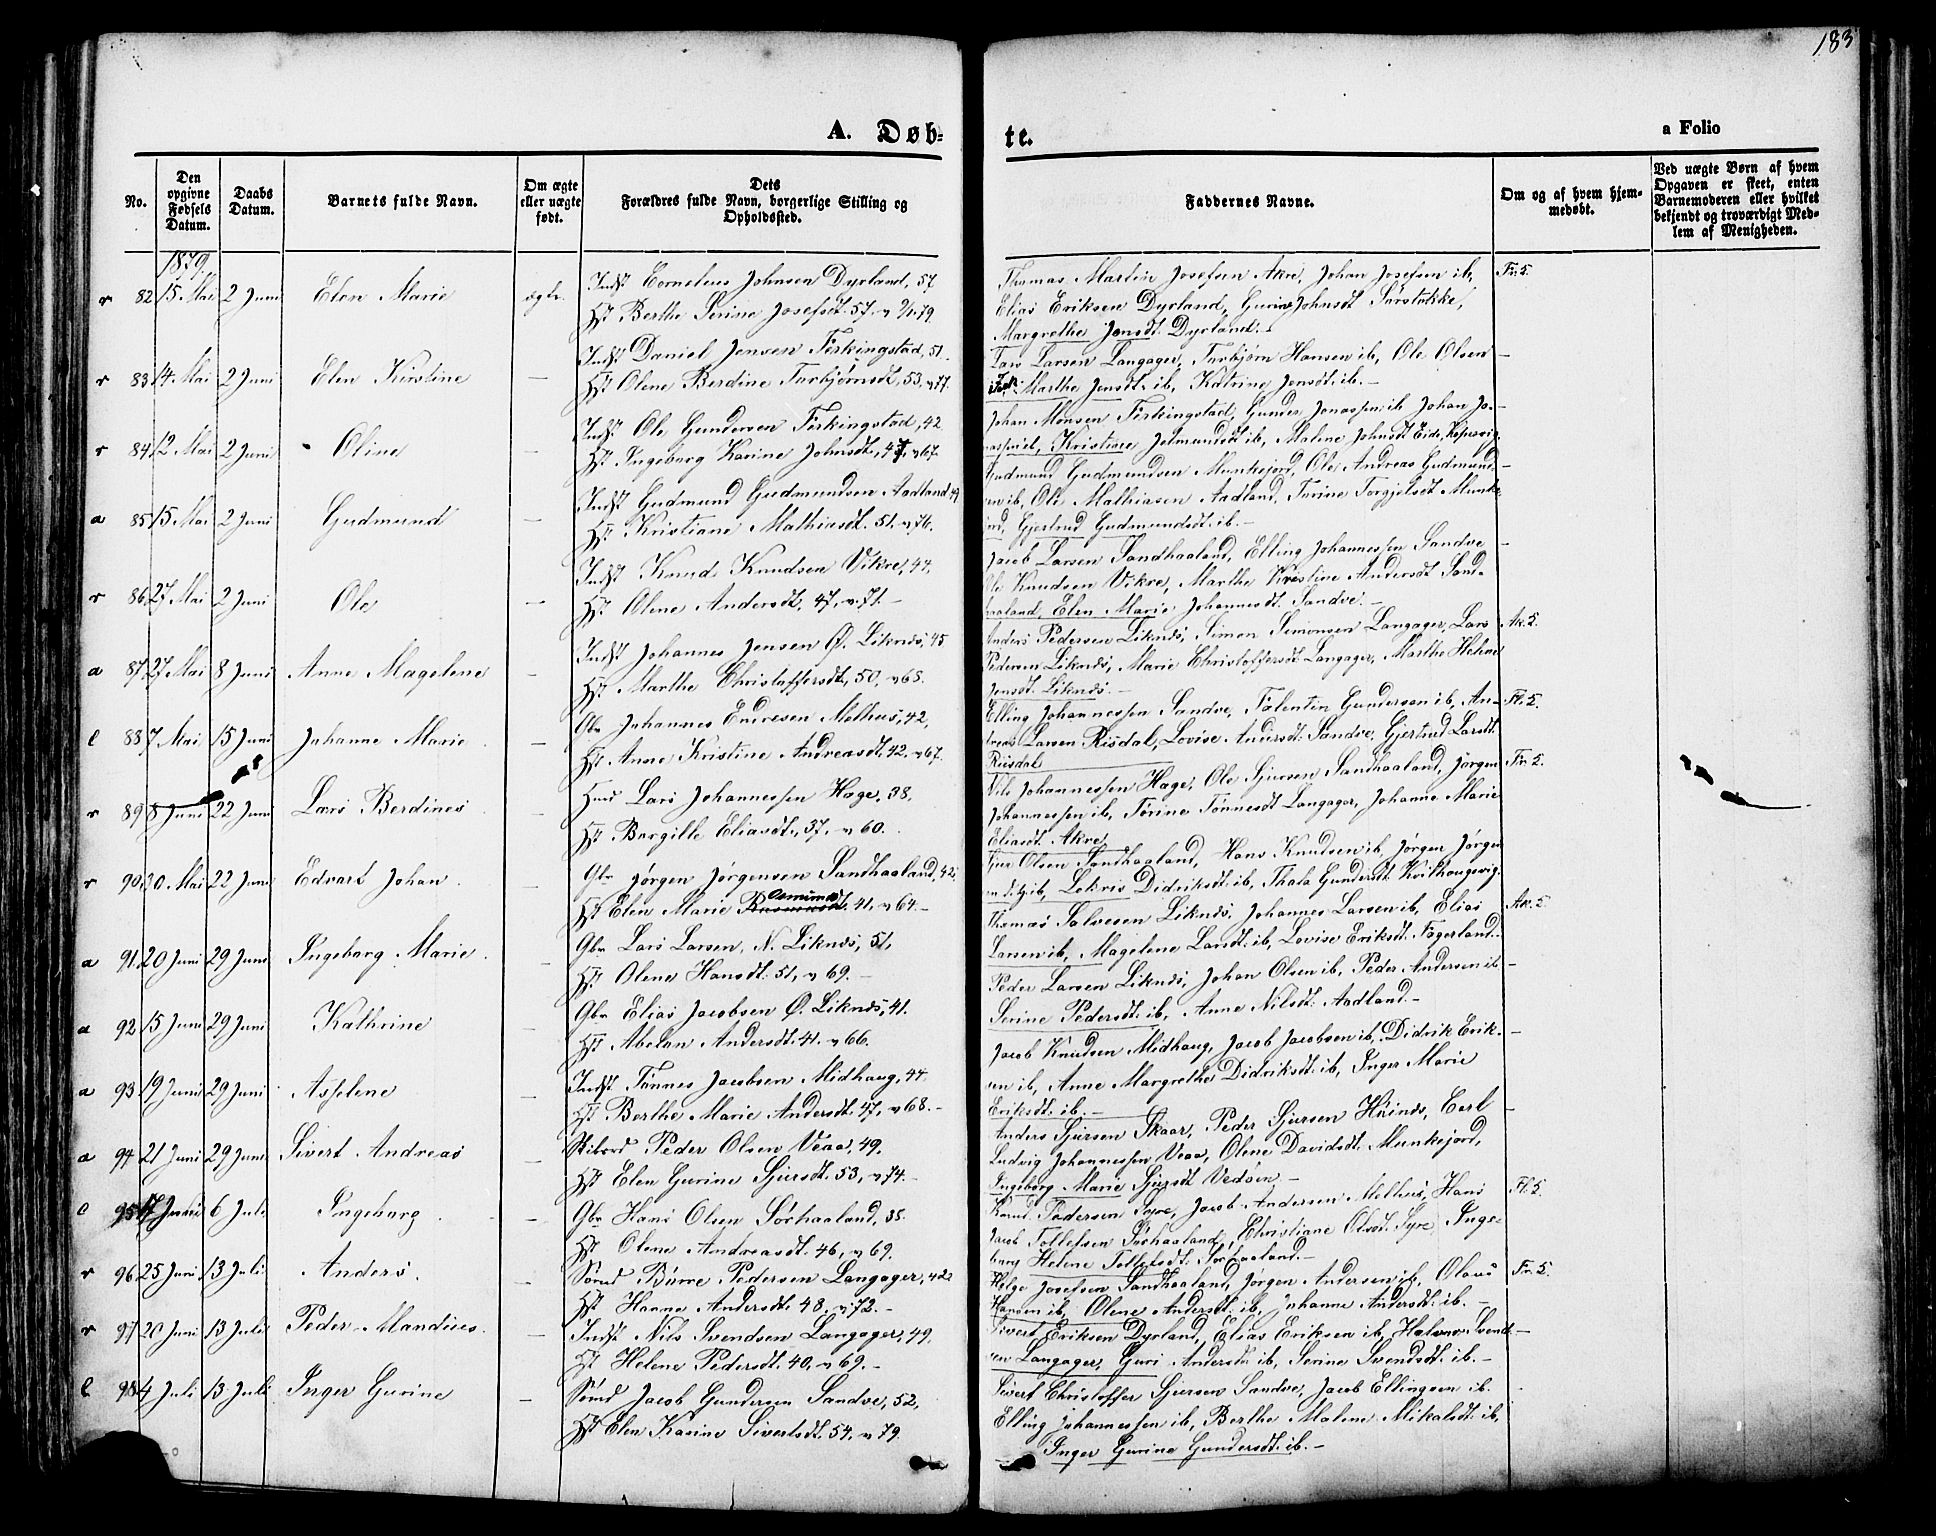 183
A. Døb-
te.
a Folio
No.
Den opgivne Fødsels Datum.
Daabs Datum.
Barnets fulde Navn.
Om ægte eller uægte født.
Dets Forældres fulde Navn, borgerlige Stilling og Opholdssted.
Faddernes Navne.
Om og af hvem hjemmedøbt.
Ved uægte Børn af hvem Opgaven er skeet, enten Barnemoderen eller hvilket bekjendt og troværdigt Medlem af Menigheden.
1879.
r 82 15 Mai 2 Juni Elen Marie ægte. Indst Cornelius Johnsen Dyrland, 57
Hst Berthe Serine Josefsdt. 57, v 2/1 79.
Thomas Martin Josefsen Akre, Johan Josefsen ib, Fr. 5.
Elias Eriksen Dyrland, Gurine Johnsdt Sørstokke,
Margrethe Jonsdt. Dyrland.
r 83 14 Mai 2 Juni Elen Kirstine — Indst Daniel Jensen Ferkingstad, 51.
Hst Olene Berdine Torbjørnsdt, 53, v 77.
Lars Larsen Langager, Torbjørn Hansen ib, Ole Olsen —
Marthe Jensdt. ib, Katrine Jensdt. ib. —
r 84 12 Mai 2 Juni Oline — Indst Ole Gundersen Ferkingstad, 42
Hst Ingeborg Karine Johnsdt, 47, v 67.
Johan Monsen Ferkingstad, Gunder Jonassen ib Johan Jo- —
Kristine Jelmundsdt ib, Malene Johnsdt Eide, Kopervig.
a 85 15 Mai 2 Juni Gudmund — Indst Gudmund Gudmundsen Aadland 49
Hst Kristiane Mathiasdt. 51. v 76.
Gudmund Gudmundsen Munkejord, Ole Andreas Gudmund- —
sen ib, Ole Mathiasen Aadland, Torine Torgjelsdt Munke-
jord, Gjertrud Gudmundsdt. ib. —
r 86 27 Mai 2 Juni Ole — Indst Knud Knudsen Vikre, 44,
Hst Olene Andersdt, 47, v. 71. —
Jacob Larsen Sandhaaland, Elling Johannessen Sandve —
Ole Knudsen Vikre, Marthe Kristine Andersdt Sand-
haaland, Elen Marie Johannesdt. Sandve. —
a 87 27 Mai 8 Juni Anne Magelene — Indst Johannes Jensen Ø. Liknes, 45
Hst Marthe Christoffersdt, 50, v 68.
Anders Pedersen Liknes, Simon Simonsen Langager, Lars Ak. 5.
Pedersen Liknes, Marie Christoffersdt Langager, Marthe Helene
Jensdt. Liknes. —
l 88 7 Mai 15 Juni Johanne Marie — Gbr Johannes Endresen Melhus, 42,
Hst Anne Kristine Andreasdt. 42. v 67.
Elling Johannessen Sandve, Falentin Gundersen ib, An- Fl. 5.
dreas Larsen Risdal, Lovise Andersdt. Sandve, Gjertrud Larsdt.
Riisdal
r 89 8 Juni 22 Juni Lars Berdines — Hmd Lars Johannessen Hage, 38,
Hst Borgille Eliasdt. 37, v 60.
Nils Johannessen Hage, Ole Sjursen Sandhaaland, Jørgen Fr. 5.
Johannessen ib, Tørine Tønnesdt Langager, Johanne Marie
Eliasdt. Akre,
r 90 30 Mai 22 Juni Edvart Johan — Gbr Jørgen Jørgensen Sandhaaland, 42,
Hst Elen Marie Asmunds dt. 41, v 64. —
Olsen Sandhaaland, Hans Knudsen ib, Jørgen Jørgen
Didriksdt. ib, Thala Gundersdt Kvilhaugsvig.
a 91 20 Juni 29 Juni Ingeborg Marie — Gbr Lars Larsen, N. Liknes, 51,
Hst Olene Hansdt. 51, v 69. —
Thomas Salvesen Liknes, Johannes Larsen ib, Elias Ak. 5.
Larsen ib, Magelene Larsdt. ib, Lovise Eriksdt. Fagerland.
a 92 15 Juni 29 Juni Kathrine — Gbr Elias Jacobsen Ø. Liknes, 41.
Hst Abelan Andersdt. 41. v 66.
Peder Larsen Liknes, Johan Olsen ib, Peder Andersen ib —
Serine Pedersdt. ib, Anne Nilsdt. Aadland. —
a 93 19 Juni 29 Juni Asselene — Indst Tønnes Jacobsen Midhaug, 44
Hst Berthe Marie Andersdt. 47, v 68. —
Jacob Knudsen Midhaug, Jacob Jacobsen ib, Didrik Erik- —
sen ib, Anne Margrethe Didriksdt. ib, Inger Marie
Eriksdt. ib. —
a 94 21 Juni 29 Juni Sivert Andreas — Peder Olsen Veaa, 49,
Hst Elen Gurine Sjursdt. 53, v 74. —
Anders Sjursen Skaar, Peder Sjursen Hines, Carl —
Ludvig Johannessen Veaa, Olene Davidsdt. Munkejord,
Ingeborg Marie Sjursdt Vedøen. —
l 95 17 Juni 6 Juli Ingeborg — Gbr Hans Olsen Sørhaaland, 38.
Hst Olene Andreasdt. 46, v 69.
Knud Pedersen Syre, Jacob Andersen Melhus, Hans Fl. 5.
Jacob Tollefsen Sørhaaland, Christiane Olsdt. Syre, Inge-
borg Helene Tollefsdt. Sørhaaland. —
r 96 25 Juni 13 Juli Anders. — Sømd Børre Pedersen Langager, 42,
Hst Hanne Andersdt. 48, v 72. —
Helge Josefsen Sandhaaland, Jørgen Andersen ib, Olaus Fr. 5.
Hansen ib, Olene Andersdt. ib, Johanne Andersdt. ib. —
r 97 20 Juni 13 Juli Peder Mandius. — Indst Nils Svendsen Langager, 49.
Hst Helene Pedersdt. 40, v 69. —
Sivert Eriksen Dyrland, Elias Eriksen ib, Halvor Svend- —
sen Langager, Guri Andersdt ib, Serine Svendsdt. ib. —
l 98 4 Juli 13 Juli Inger Gurine — Sømd Jacob Gundersen Sandve, 52,
Hst Elen Karine Sivertsdt. 54, v 79.
Sivert Christoffer Sjursen Sandve, Jacob Ellingsen ib.
Elling Johannessen ib, Berthe Malene Mikalsdt. ib,
Inger Gurine Gundersdt. ib. —